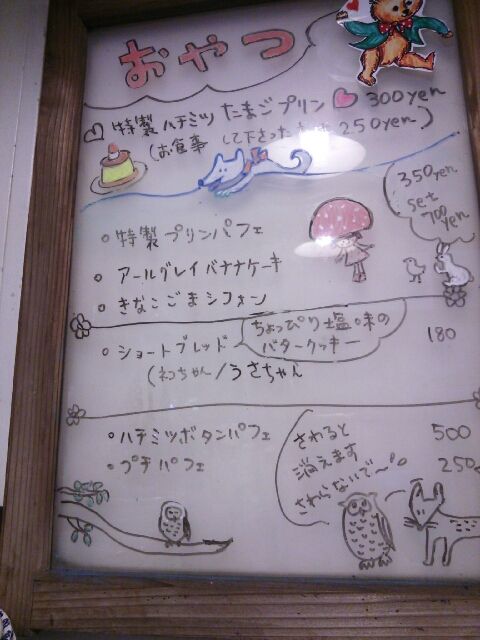 おやつ
特製ハチミツたまごプリン 300yen
(お食事して下さった 250yen)
350yen
set
700
yen
。特製プリンパフェ
。アールグレイバナナケーキ
。きなこごまシフォン
。ショートブレッド ちょっぴり塩味の
バタークッキー 180
(ネコちゃん/うさちゃん
。ハチミツボタンパフェ 500
。プチパフェ 250
されると
消えます
さわらないで〜